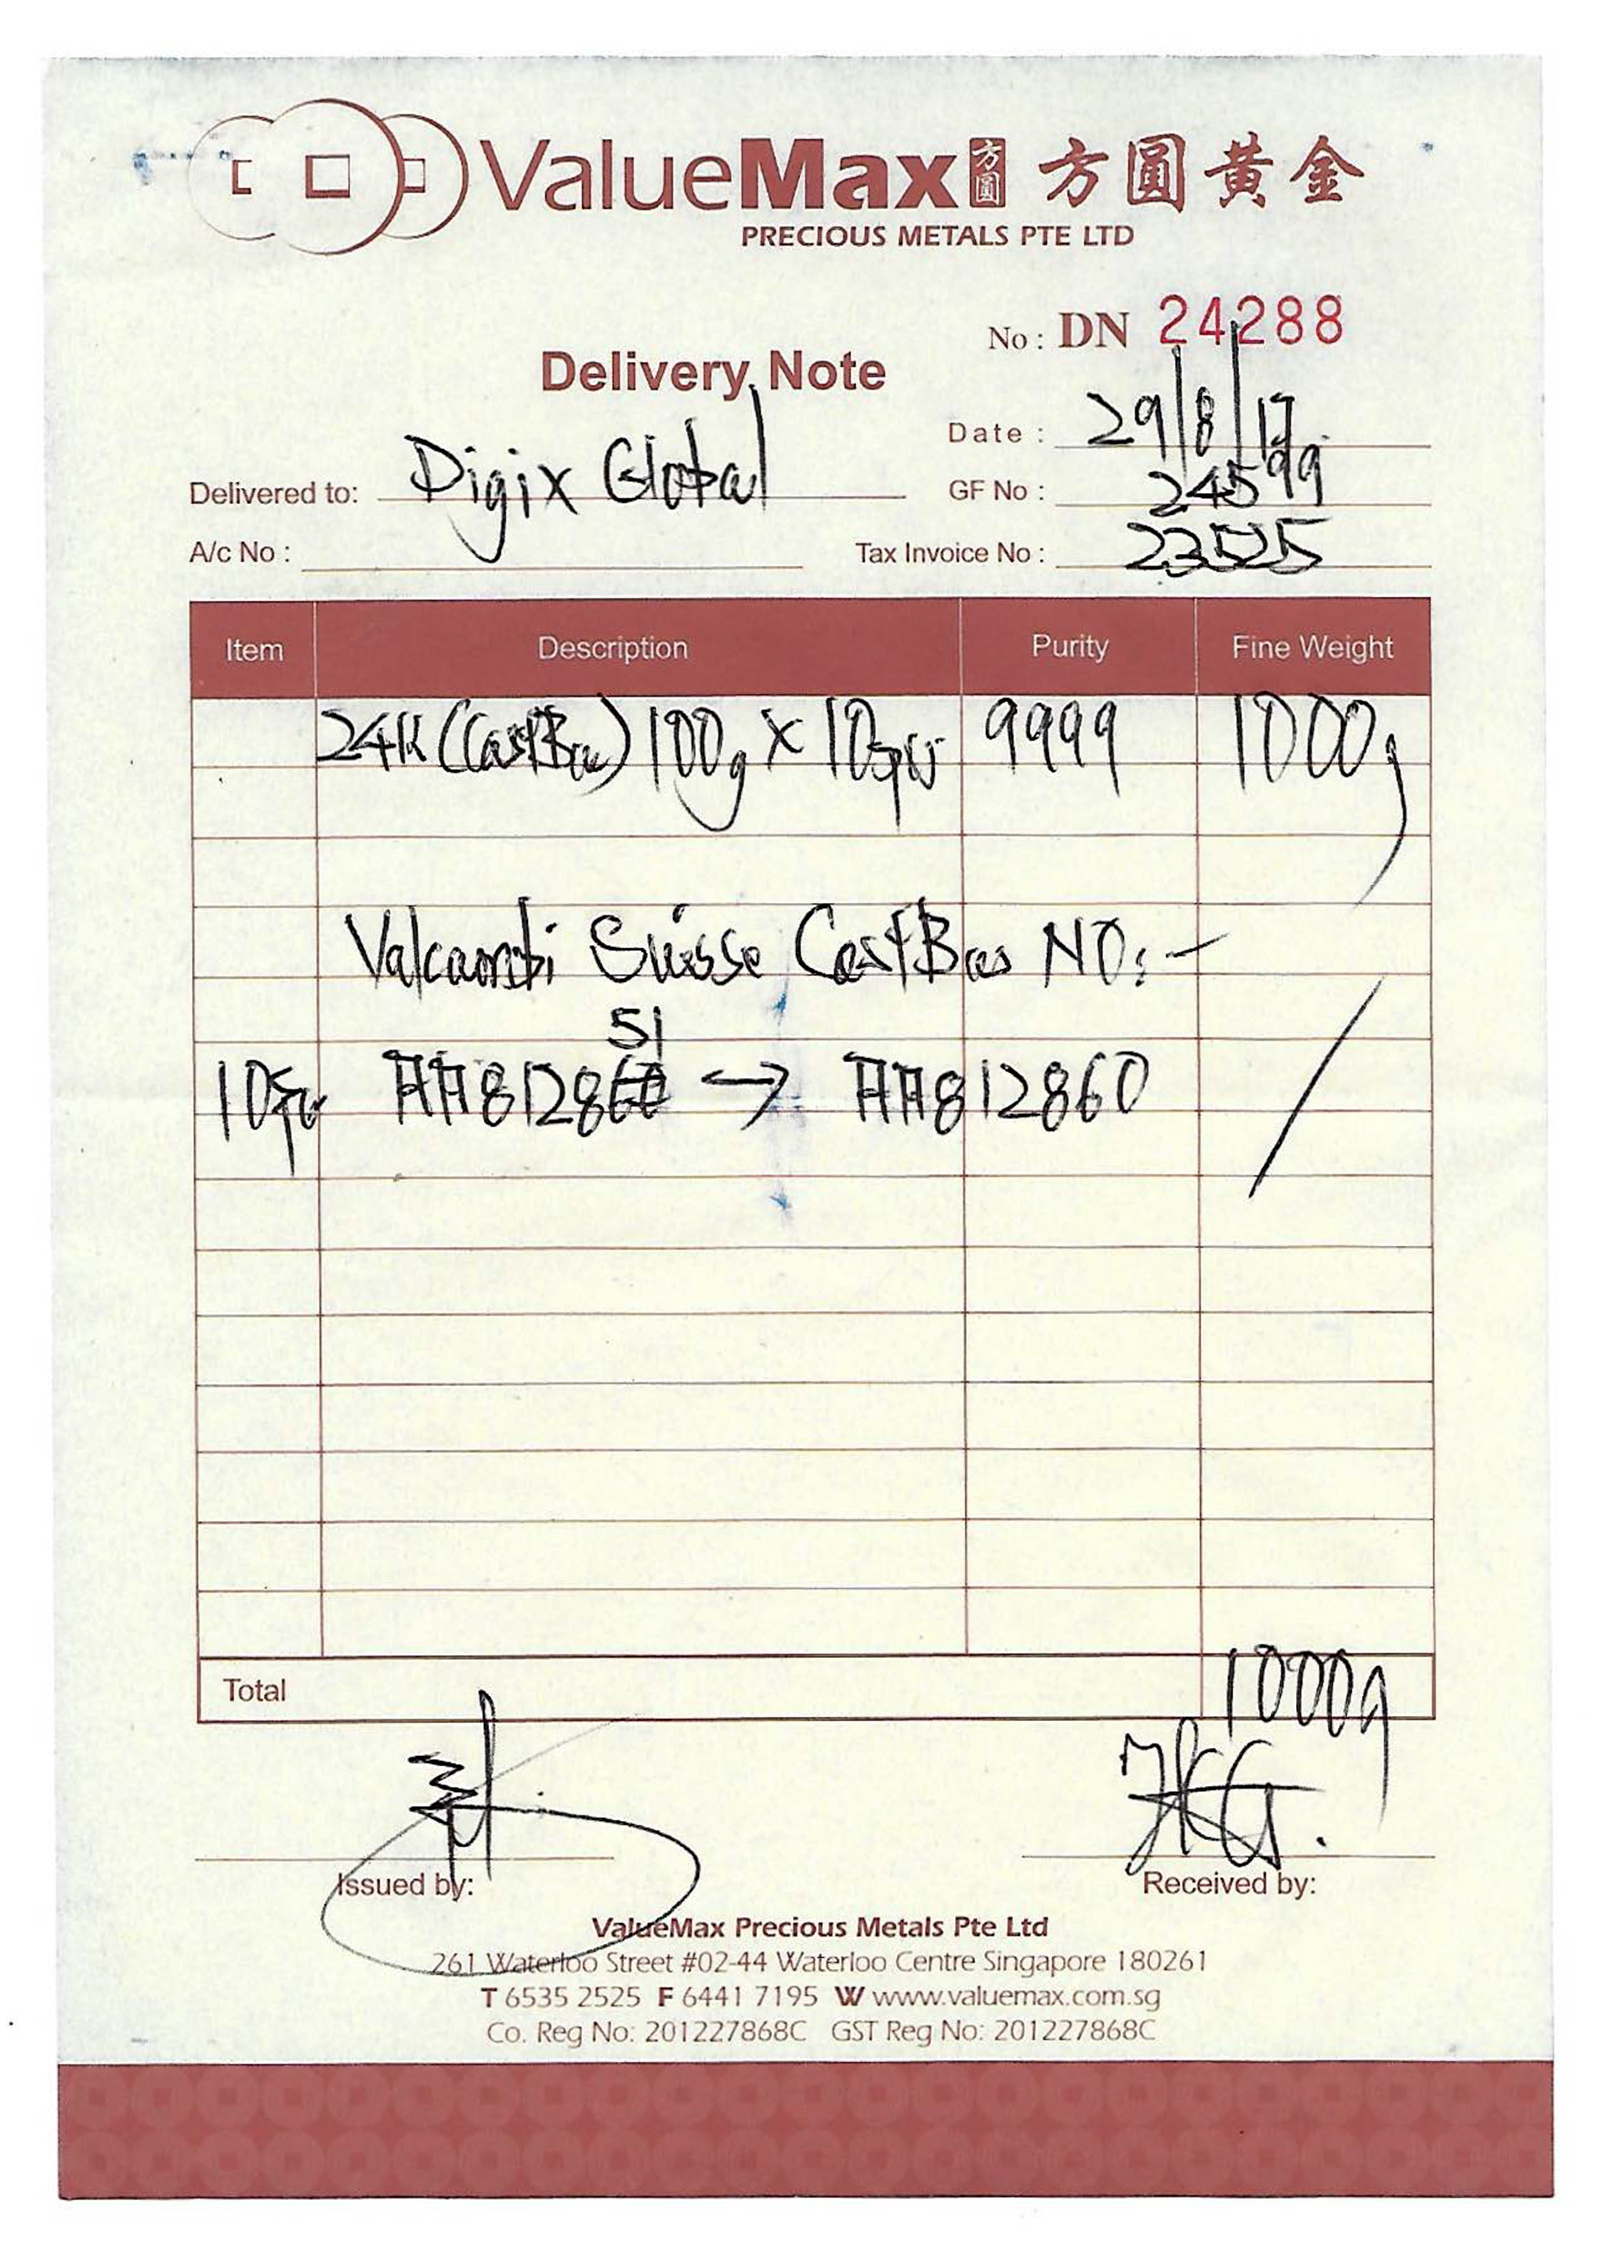 ValueMax 方圓 方圓黃金
PRECIOUS METALS PTE LTD
No : DN 24288
Delivery Note
Date : 29/8/17
Delivered to: Digix Global
GF No : 24599
A/c No :
Tax Invoice No : 23525
Item Description Purity Fine Weight
24K (CastBar) 100g x 10pcs 9999 1000g
Valcambi Suisse CastBars NO:-
51
10pcs AA812860 → AA812860
Total 1000g
Issued by:
Received by:
ValueMax Precious Metals Pte Ltd
261 Waterloo Street #02-44 Waterloo Centre Singapore 180261
T 6535 2525 F 6441 7195 W www.valuemax.com.sg
Co. Reg No: 201227868C GST Reg No: 201227868C